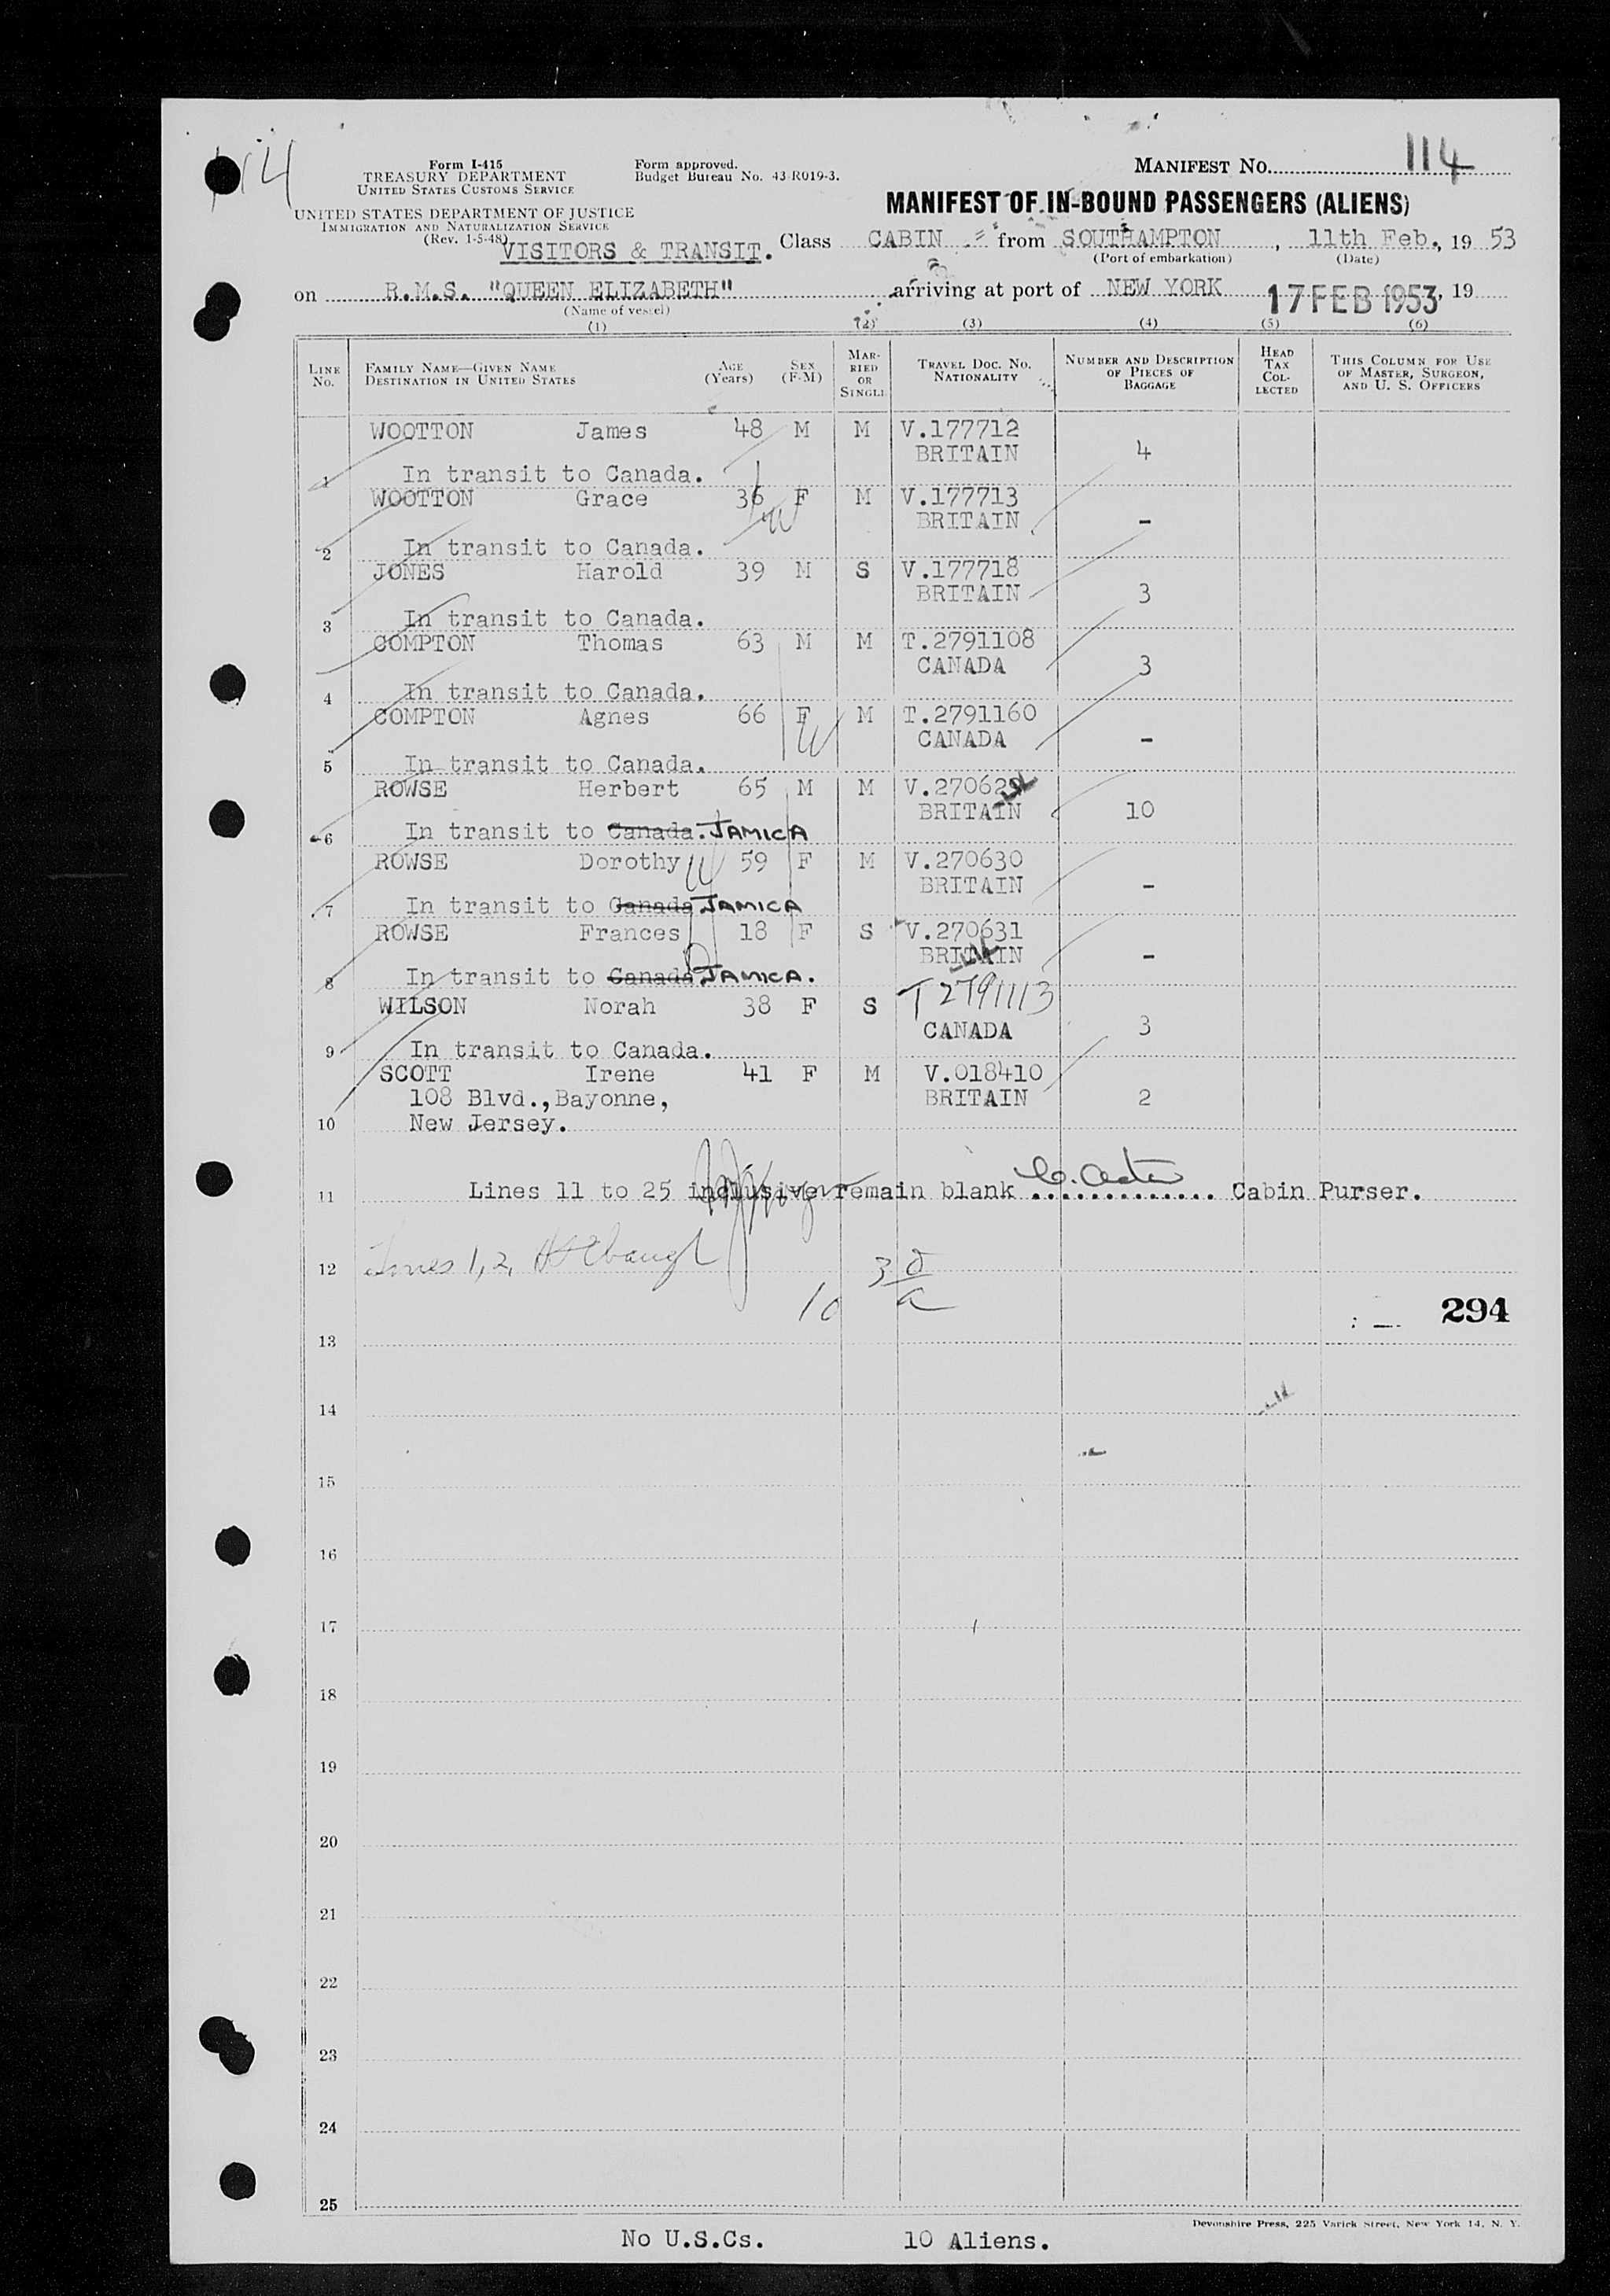 114
Form I-415
TREASURY DEPARTMENT
UNITED STATES CUSTOMS SERVICE
Form approved.
Budget Bureau No. 43-R019-3.
MANIFEST NO. 114
UNITED STATES DEPARTMENT OF JUSTICE
IMMIGRATION AND NATURALIZATION SERVICE
(Rev. 1-5-48)
MANIFEST OF IN-BOUND PASSENGERS (ALIENS)
VISITORS & TRANSIT. Class CABIN from SOUTHAMPTON, 11th Feb., 19 53
(Port of embarkation) (Date)
on R.M.S. "QUEEN ELIZABETH" arriving at port of NEW YORK 17 FEB 1953, 19
(Name of vessel)
(1) (2) (3) (4) (5) (6)
LINE NO. FAMILY NAME—GIVEN NAME DESTINATION IN UNITED STATES AGE (Years) SEX (F-M) MARRIED OR SINGLE TRAVEL DOC. NO. NATIONALITY NUMBER AND DESCRIPTION OF PIECES OF BAGGAGE HEAD TAX COLLECTED THIS COLUMN FOR USE OF MASTER, SURGEON, AND U. S. OFFICERS
WOOTTON James 48 M M V.177712
BRITAIN 4
1 In transit to Canada.
WOOTTON Grace 36 F M V.177713
BRITAIN -
2 In transit to Canada.
JONES Harold 39 M S V.177718
BRITAIN 3
3 In transit to Canada.
COMPTON Thomas 63 M M T.2791108
CANADA 3
4 In transit to Canada.
COMPTON Agnes 66 F M T.2791160
CANADA -
5 In transit to Canada.
ROWSE Herbert 65 M M V.270629
BRITAIN 10
6 In transit to Canada. JAMICA
ROWSE Dorothy 59 F M V.270630
BRITAIN -
7 In transit to Canada JAMICA
ROWSE Frances 18 F S V.270631
BRITAIN -
8 In transit to Canada JAMICA.
WILSON Norah 38 F S T2791113
CANADA 3
9 In transit to Canada.
SCOTT Irene 41 F M V.018410
108 Blvd., Bayonne, BRITAIN 2
10 New Jersey.
11 Lines 11 to 25 inclusive remain blank ............. Cabin Purser.
12 1, 2,
10 3
294
13
14
15
16
17
18
19
20
21
22
23
24
25
Devonshire Press, 225 Varick Street, New York 14, N. Y.
No U.S.Cs. 10 Aliens.